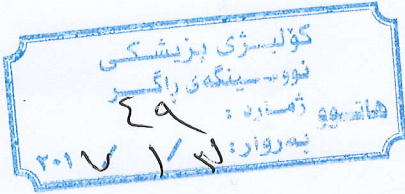 کۆلیـژی پزیشـکی
نووسـینگەی ڕاگـر
هاتـوو ژمـارە : ٤٩
بەروار: / ١ / ٢٠١٧